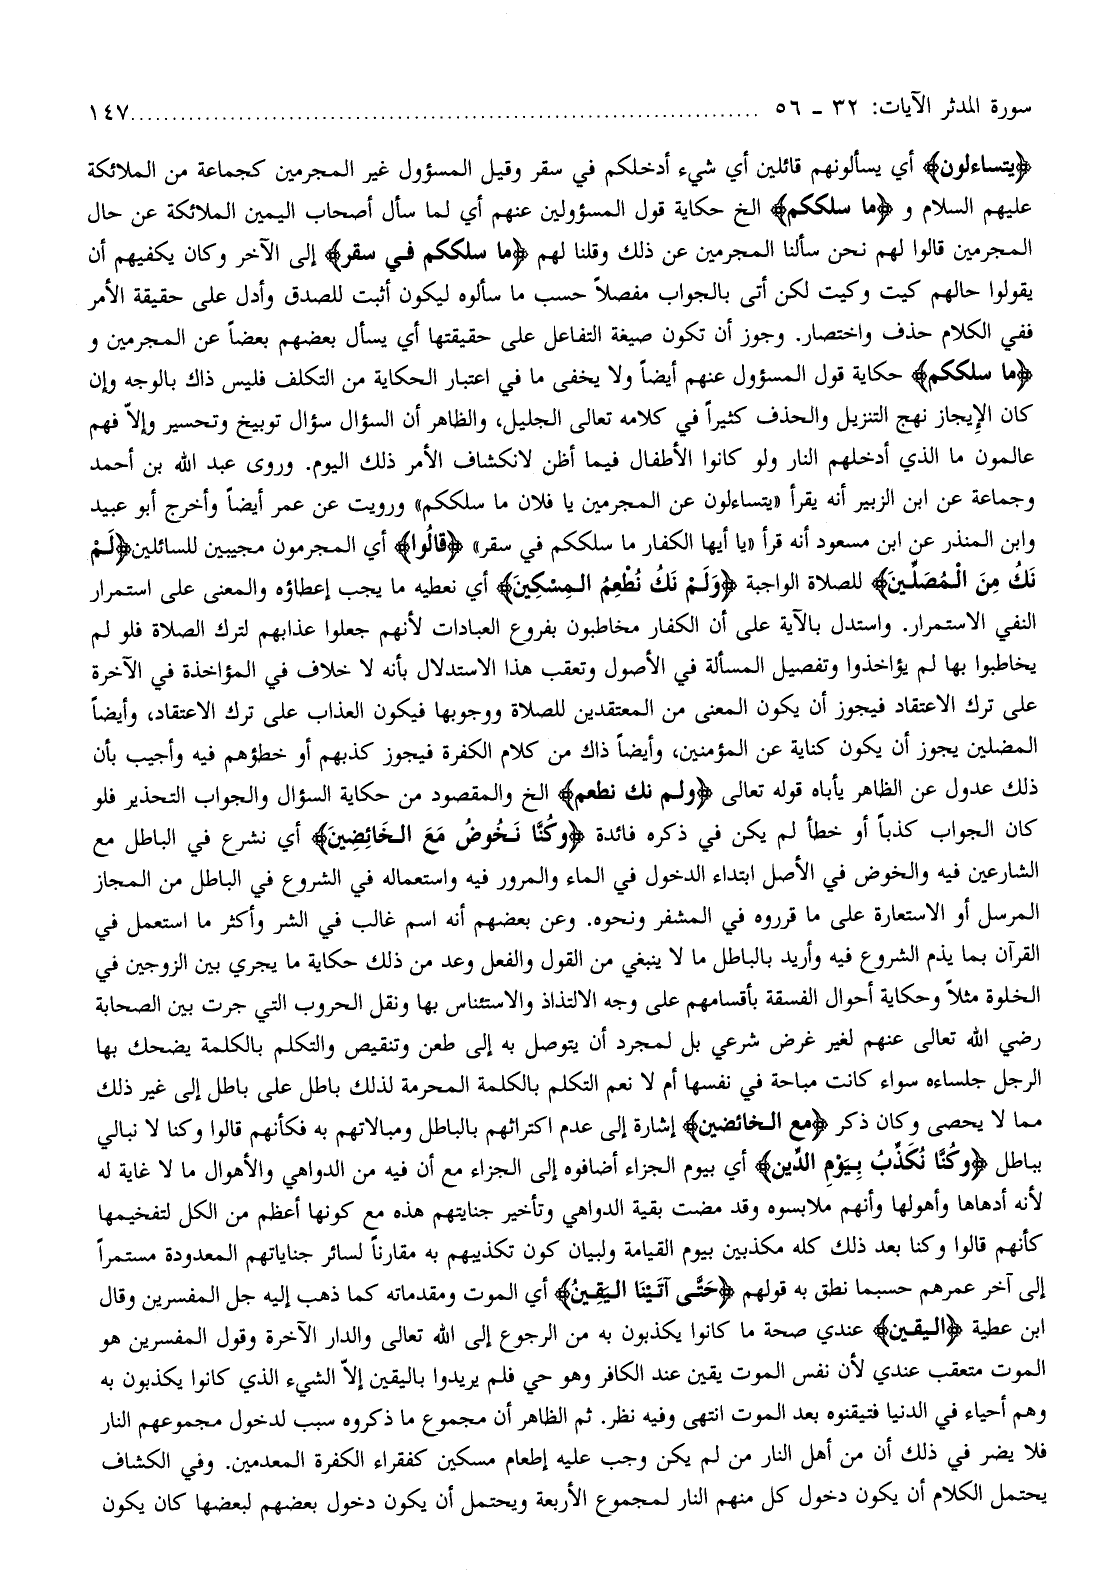 سورة المدثر الآيات: ٣٢ - ٥٦ ........................................ ١٤٧
﴿يتساءلون﴾ أي يسألونهم قائلين أي شيء أدخلكم في سقر وقيل المسؤول غير المجرمين كجماعة من الملائكة
عليهم السلام و ﴿ما سلككم﴾ الخ حكاية قول المسؤولين عنهم أي لما سأل أصحاب اليمين الملائكة عن حال
المجرمين قالوا لهم نحن سألنا المجرمين عن ذلك وقلنا لهم ﴿ما سلككم في سقر﴾ إلى الآخر وكان يكفيهم أن
يقولوا حالهم كيت وكيت لكن أتى بالجواب مفصلاً حسب ما سألوه ليكون أثبت للصدق وأدل على حقيقة الأمر
ففي الكلام حذف واختصار. وجوز أن تكون صيغة التفاعل على حقيقتها أي يسأل بعضهم بعضاً عن المجرمين و
﴿ما سلككم﴾ حكاية قول المسؤول عنهم أيضاً ولا يخفى ما في اعتبار الحكاية من التكلف فليس ذاك بالوجه وإن
كان الإيجاز نهج التنزيل والحذف كثيراً في كلامه تعالى الجليل، والظاهر أن السؤال سؤال توبيخ وتحسير وإلاّ فهم
عالمون ما الذي أدخلهم النار ولو كانوا الأطفال فيما أظن لانكشاف الأمر ذلك اليوم. وروى عبد الله بن أحمد
وجماعة عن ابن الزبير أنه يقرأ «يتساءلون عن المجرمين يا فلان ما سلككم» ورويت عن عمر أيضاً وأخرج أبو عبيد
وابن المنذر عن ابن مسعود أنه قرأ «يا أيها الكفار ما سلككم في سقر» ﴿قالُوا﴾ أي المجرمون مجيبين للسائلين﴿لَمْ
نَكُ مِنَ الْمُصَلِّينَ﴾ للصلاة الواجبة ﴿وَلَمْ نَكُ نُطْعِمُ المِسْكِينَ﴾ أي نعطيه ما يجب إعطاؤه والمعنى على استمرار
النفي الاستمرار. واستدل بالآية على أن الكفار مخاطبون بفروع العبادات لأنهم جعلوا عذابهم لترك الصلاة فلو لم
يخاطبوا بها لم يؤاخذوا وتفصيل المسألة في الأصول وتعقب هذا الاستدلال بأنه لا خلاف في المؤاخذة في الآخرة
على ترك الاعتقاد فيجوز أن يكون المعنى من المعتقدين للصلاة ووجوبها فيكون العذاب على ترك الاعتقاد، وأيضاً
المضلين يجوز أن يكون كناية عن المؤمنين، وأيضاً ذاك من كلام الكفرة فيجوز كذبهم أو خطؤهم فيه وأجيب بأن
ذلك عدول عن الظاهر يأباه قوله تعالى ﴿ولم نك نطعم﴾ الخ والمقصود من حكاية السؤال والجواب التحذير فلو
كان الجواب كذباً أو خطأ لم يكن في ذكره فائدة ﴿وكُنَّا نَخُوضُ مَعَ الخَائِضِينَ﴾ أي نشرع في الباطل مع
الشارعين فيه والخوض في الأصل ابتداء الدخول في الماء والمرور فيه واستعماله في الشروع في الباطل من المجاز
المرسل أو الاستعارة على ما قرروه في المشفر ونحوه. وعن بعضهم أنه اسم غالب في الشر وأكثر ما استعمل في
القرآن بما يذم الشروع فيه وأريد بالباطل ما لا ينبغي من القول والفعل وعد من ذلك حكاية ما يجري بين الزوجين في
الخلوة مثلاً وحكاية أحوال الفسقة بأقسامهم على وجه الالتذاذ والاستئناس بها ونقل الحروب التي جرت بين الصحابة
رضي الله تعالى عنهم لغير غرض شرعي بل لمجرد أن يتوصل به إلى طعن وتنقيص والتكلم بالكلمة يضحك بها
الرجل جلساءه سواء كانت مباحة في نفسها أم لا نعم التكلم بالكلمة المحرمة لذلك باطل على باطل إلى غير ذلك
مما لا يحصى وكان ذكر ﴿مع الخائضين﴾ إشارة إلى عدم اكتراثهم بالباطل ومبالاتهم به فكأنهم قالوا وكنا لا نبالي
بباطل ﴿وكُنَّا نُكَذِّبُ بِيَوْمِ الدِّين﴾ أي بيوم الجزاء أضافوه إلى الجزاء مع أن فيه من الدواهي والأهوال ما لا غاية له
لأنه أدهاها وأهولها وأنهم ملابسوه وقد مضت بقية الدواهي وتأخير جنايتهم هذه مع كونها أعظم من الكل لتفخيمها
كأنهم قالوا وكنا بعد ذلك كله مكذبين بيوم القيامة ولبيان كون تكذيبهم به مقارناً لسائر جناياتهم المعدودة مستمراً
إلى آخر عمرهم حسبما نطق به قولهم ﴿حَتَّى آتَيْنَا اليَقِينُ﴾ أي الموت ومقدماته كما ذهب إليه جل المفسرين وقال
ابن عطية ﴿اليقين﴾ عندي صحة ما كانوا يكذبون به من الرجوع إلى الله تعالى والدار الآخرة وقول المفسرين هو
الموت متعقب عندي لأن نفس الموت يقين عند الكافر وهو حي فلم يريدوا باليقين إلاّ الشيء الذي كانوا يكذبون به
وهم أحياء في الدنيا فتيقنوه بعد الموت انتهى وفيه نظر. ثم الظاهر أن مجموع ما ذكروه سبب لدخول مجموعهم النار
فلا يضر في ذلك أن من أهل النار من لم يكن وجب عليه إطعام مسكين كفقراء الكفرة المعدمين. وفي الكشاف
يحتمل الكلام أن يكون دخول كل منهم النار لمجموع الأربعة ويحتمل أن يكون دخول بعضهم لبعضها كان يكون